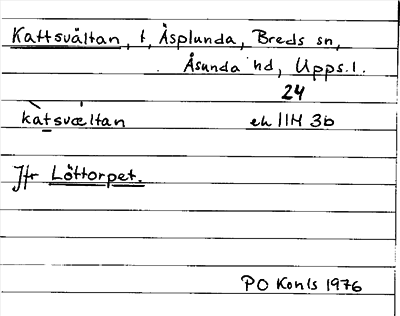 Kattsvältan, t, Åsplunda, Breds sn,
Åsunda hd, Upps. l.
24
kàtsvæ̀ltan ek 11H 3b
Jfr Löttorpet.
PO Konls 1976